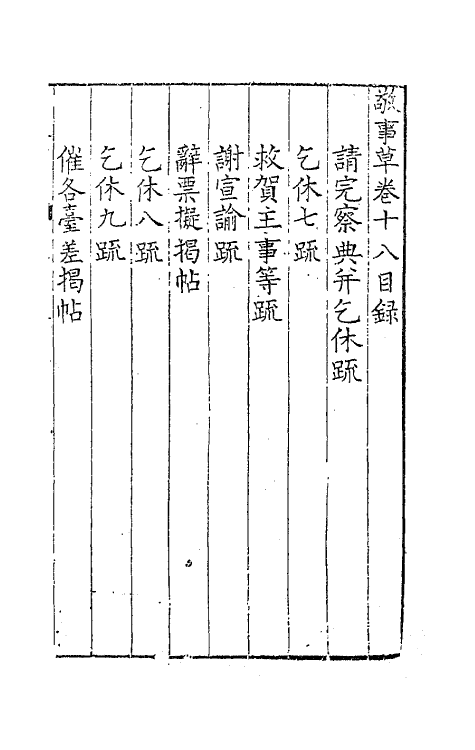 敬事草卷十八目録
請完察典并乞休䟽
乞休七䟽
救賀主事等䟽
謝宣諭䟽
辭票擬揭帖
乞休八䟽
乞休九䟽
催各臺差揭帖